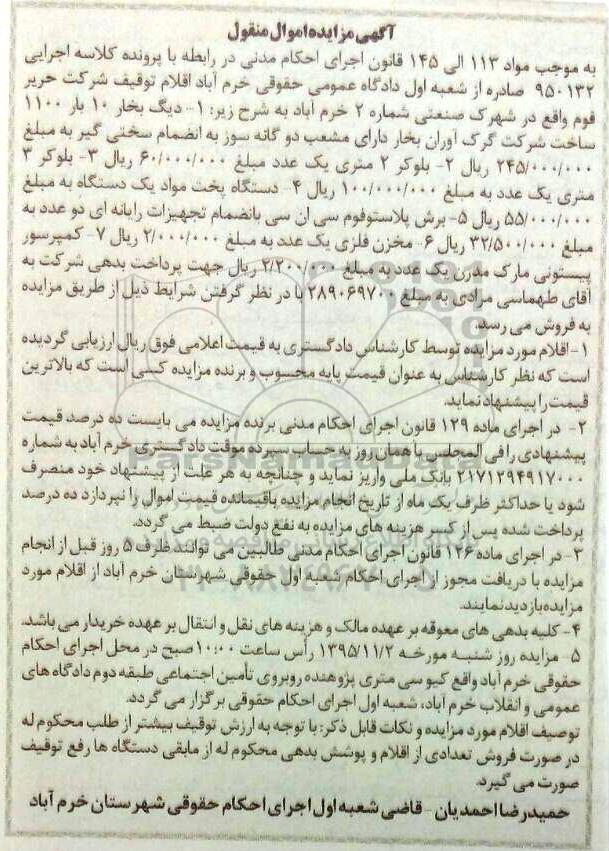 آگهی مزایده اموال منقول
به موجب مواد ۱۱۳ الی ۱۴۵ قانون اجرای احکام مدنی در رابطه با پرونده کلاسه اجرایی
۹۵۰۱۳۲ صادره از شعبه اول دادگاه عمومی حقوقی خرم آباد اقلام توقیف شرکت حریر
فوم واقع در شهرک صنعتی شماره ۲ خرم آباد به شرح زیر: ۱- دیگ بخار ۱۰ بار ۱۱۰۰
ساخت شرکت گرک آوران بخار دارای مشعب دو گانه سوز به انضمام سختی گیر به مبلغ
۲۴۵/۰۰۰/۰۰۰ ریال ۲- بلوکر ۲ متری یک عدد به مبلغ ۶۰/۰۰۰/۰۰۰ ریال ۳- بلوکر ۳
متری یک عدد به مبلغ ۱۰۰/۰۰۰/۰۰۰ ریال ۴- دستگاه پخت مواد یک دستگاه به مبلغ
۵۵/۰۰۰/۰۰۰ ریال ۵- برش پلاستوفوم سی ان سی بانضمام تجهیزات رایانه ای دو عدد به
مبلغ ۳۲/۵۰۰/۰۰۰ ریال ۶- مخزن فلزی یک عدد به مبلغ ۲/۰۰۰/۰۰۰ ریال ۷- کمپرسور
پیستونی مارک مدرن یک عدد به مبلغ ۲/۲۰۰/۰۰۰ ریال جهت پرداخت بدهی شرکت به
آقای طهماسی مرادی به مبلغ ۲۸۹۰۶۹۷۰۰ با در نظر گرفتن شرایط ذیل از طریق مزایده
به فروش می رسد.
۱- اقلام مورد مزایده توسط کارشناس دادگستری به قیمت اعلامی فوق ریال ارزیابی گردیده
است که نظر کارشناس به عنوان قیمت پایه محسوب و برنده مزایده کسی است که بالاترین
قیمت را پیشنهاد نماید.
۲- در اجرای ماده ۱۲۹ قانون اجرای احکام مدنی برنده مزایده می بایست ده درصد قیمت
پیشنهادی را فی المجلس یا همان روز به حساب سپرده موقت دادگستری خرم آباد به شماره
۲۱۷۱۲۹۴۹۱۷۰۰۰ بانک ملی واریز نماید و چنانچه به هر علت از پیشنهاد خود منصرف
شود یا حداکثر ظرف یک ماه از تاریخ انجام مزایده باقیمانده قیمت اموال را نپردازد ده درصد
پرداخت شده پس از کسر هزینه های مزایده به نفع دولت ضبط می گردد.
۳- در اجرای ماده ۱۲۶ قانون اجرای احکام مدنی طالبین می توانند ظرف ۵ روز قبل از انجام
مزایده با دریافت مجوز از اجرای احکام شعبه اول حقوقی شهرستان خرم آباد از اقلام مورد
مزایده بازدید نمایند.
۴- کلیه بدهی های معوقه بر عهده مالک و هزینه های نقل و انتقال بر عهده خریدار می باشد.
۵- مزایده روز شنبه مورخه ۱۳۹۵/۱۱/۲ رأس ساعت ۱۰:۰۰ صبح در محل اجرای احکام
حقوقی خرم آباد واقع کیو سی متری پژوهنده روبروی تأمین اجتماعی طبقه دوم دادگاه های
عمومی و انقلاب خرم آباد، شعبه اول اجرای احکام حقوقی برگزار می گردد.
توصیف اقلام مورد مزایده و نکات قابل ذکر: با توجه به ارزش توقیف بیشتر از طلب محکوم له
در صورت فروش تعدادی از اقلام و پوشش بدهی محکوم له از مابقی دستگاه ها رفع توقیف
صورت می گیرد.
حمیدرضا احمدیان - قاضی شعبه اول اجرای احکام حقوقی شهرستان خرم آباد